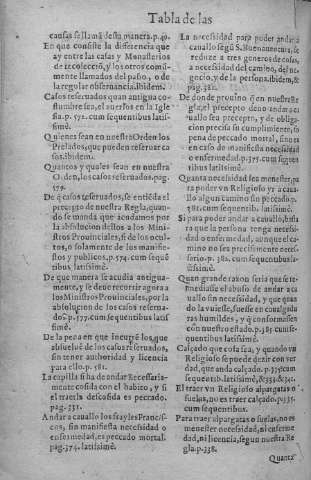 Tabla de las
causas se llamã desta manera. p. 40.
En que consiste la diferencia que
ay entre las casas y Monasterios
de recoleccíõ, y los otros comũ-
mente llamados del paño, o de
la regular obseruancia. ibidem.
Casos reseruados quan antigua co-
stumbre sea, el auerlos en la Igle
sia. p. 572. cum sequentibus lati-
simè.
Quienes sean en nuestra Orden los
Prelados, que pueden reseruar ca
sos. ibidem.
Quantos y quales sean en nuestra
Orden, los casos reseruados. pag.
579.
De q̃ casos reseruados, se entiẽda el
precepto de nuestra Regla, quan-
do se manda que acudamos por
la absolucion dellos a los Mini
stros Prouinciales, si de los ocul-
tos, o solamente de los manifies-
tos y publicos, p. 574. cum sequẽ
tibus latissimè.
De que manera se acudia antigua-
mente, y se deue recurrir agora a
los Ministros Prouinciales, por la
absolucion de los casos reserua-
dos. p. 577. cum sequentibus latis
simè.
De la pena en que incurrẽ los, que
absueluẽ de los casos reseruados,
sin tener authoridad y licencia
para ello. p. 581.
La capilla si ha de andar necessaria-
mente cosida con el habito, y si
el traerla descosida es peccado.
pag. 331.
Andar a cauallo los frayles Francis-
cos, sin manifiesta necessidad o
enfermedad, es peccado mortal.
pag. 374. latissimè.
La necessidad para poder andar a
cauallo segũ S. Buenauentura, se
reduze a tres generos de cosas,
a necessidad del camino, del ne-
gocio, y de la persona. ibidem, &
pag. 381.
De donde prouino q̃ en nuestra Re
gla, el precepto de no andar a ca
uallo sea precepto, y de obliga-
cion precisa su cumplimiento, so
pena de peccado mortal, sino es
en caso de manifiesta necessidad
o enfermedad. p. 375. cum sequen
tibus latissimè.
Quanta necessidad sea menester, pa
ra poder vn Religioso yr a caua-
llo algun camino sin peccado. p.
381. cum sequentibus, latissimè.
Si para poder andar a cauallo, basta
ra que la persona tenga necessi-
dad o enfermedad, aunque el ca-
mino no sea precisamente neces-
sario. p. 382. cum sequentibus la-
tissimè.
Quan grande razon seria que se re-
mediasse el abuso de andar a ca
uallo sin necessidad, y que quan-
do la vuiesse, fuesse en caualgadu
ras humildes, y q̃ conformassen
con nuestro estado. p. 385. cum se-
quentibus.
Calçado que cosa sea, y quando vn
Religioso se puede dezir con ver
dad, que anda calçado. p. 335. cum
sequentib. latissimè, & 333. & 341.
El traer vn Religioso alpargatas o
suelas, no es traer calçado. p. 335.
cum sequentibus.
Para traer alpargatas o suelas, no es
menester necessidad, ni enferme
dad, ni licencia, segun nuestra Re
gla. p. 338.
Quanta